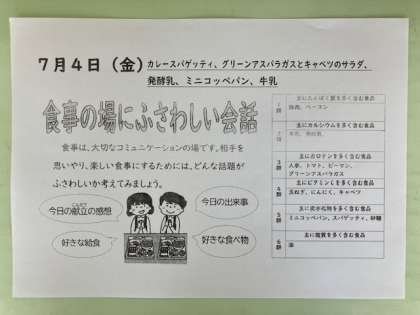 7月4日（金）カレースパゲッティ、グリーンアスパラガスとキャベツのサラダ、
発酵乳、ミニコッペパン、牛乳
食事の場にふさわしい会話
食事は、大切なコミュニケーションの場です。相手を
思いやり、楽しい食事にするためには、どんな話題が
ふさわしいか考えてみましょう。
今日の献立の感想
こんだて
今日の出来事
好きな給食
好きな食べ物
主にたんぱく質を多く含む食品
1群
豚肉、ベーコン
主にカルシウムを多く含む食品
2群
牛乳、発酵乳
主にカロテンを多く含む食品
3群
人参、トマト、ピーマン、
グリーンアスパラガス
主にビタミンCを多く含む食品
4群
玉ねぎ、にんにく、キャベツ
主に炭水化物を多く含む食品
5群
ミニコッペパン、スパゲッティ、砂糖
主に脂質を多く含む食品
6群
油